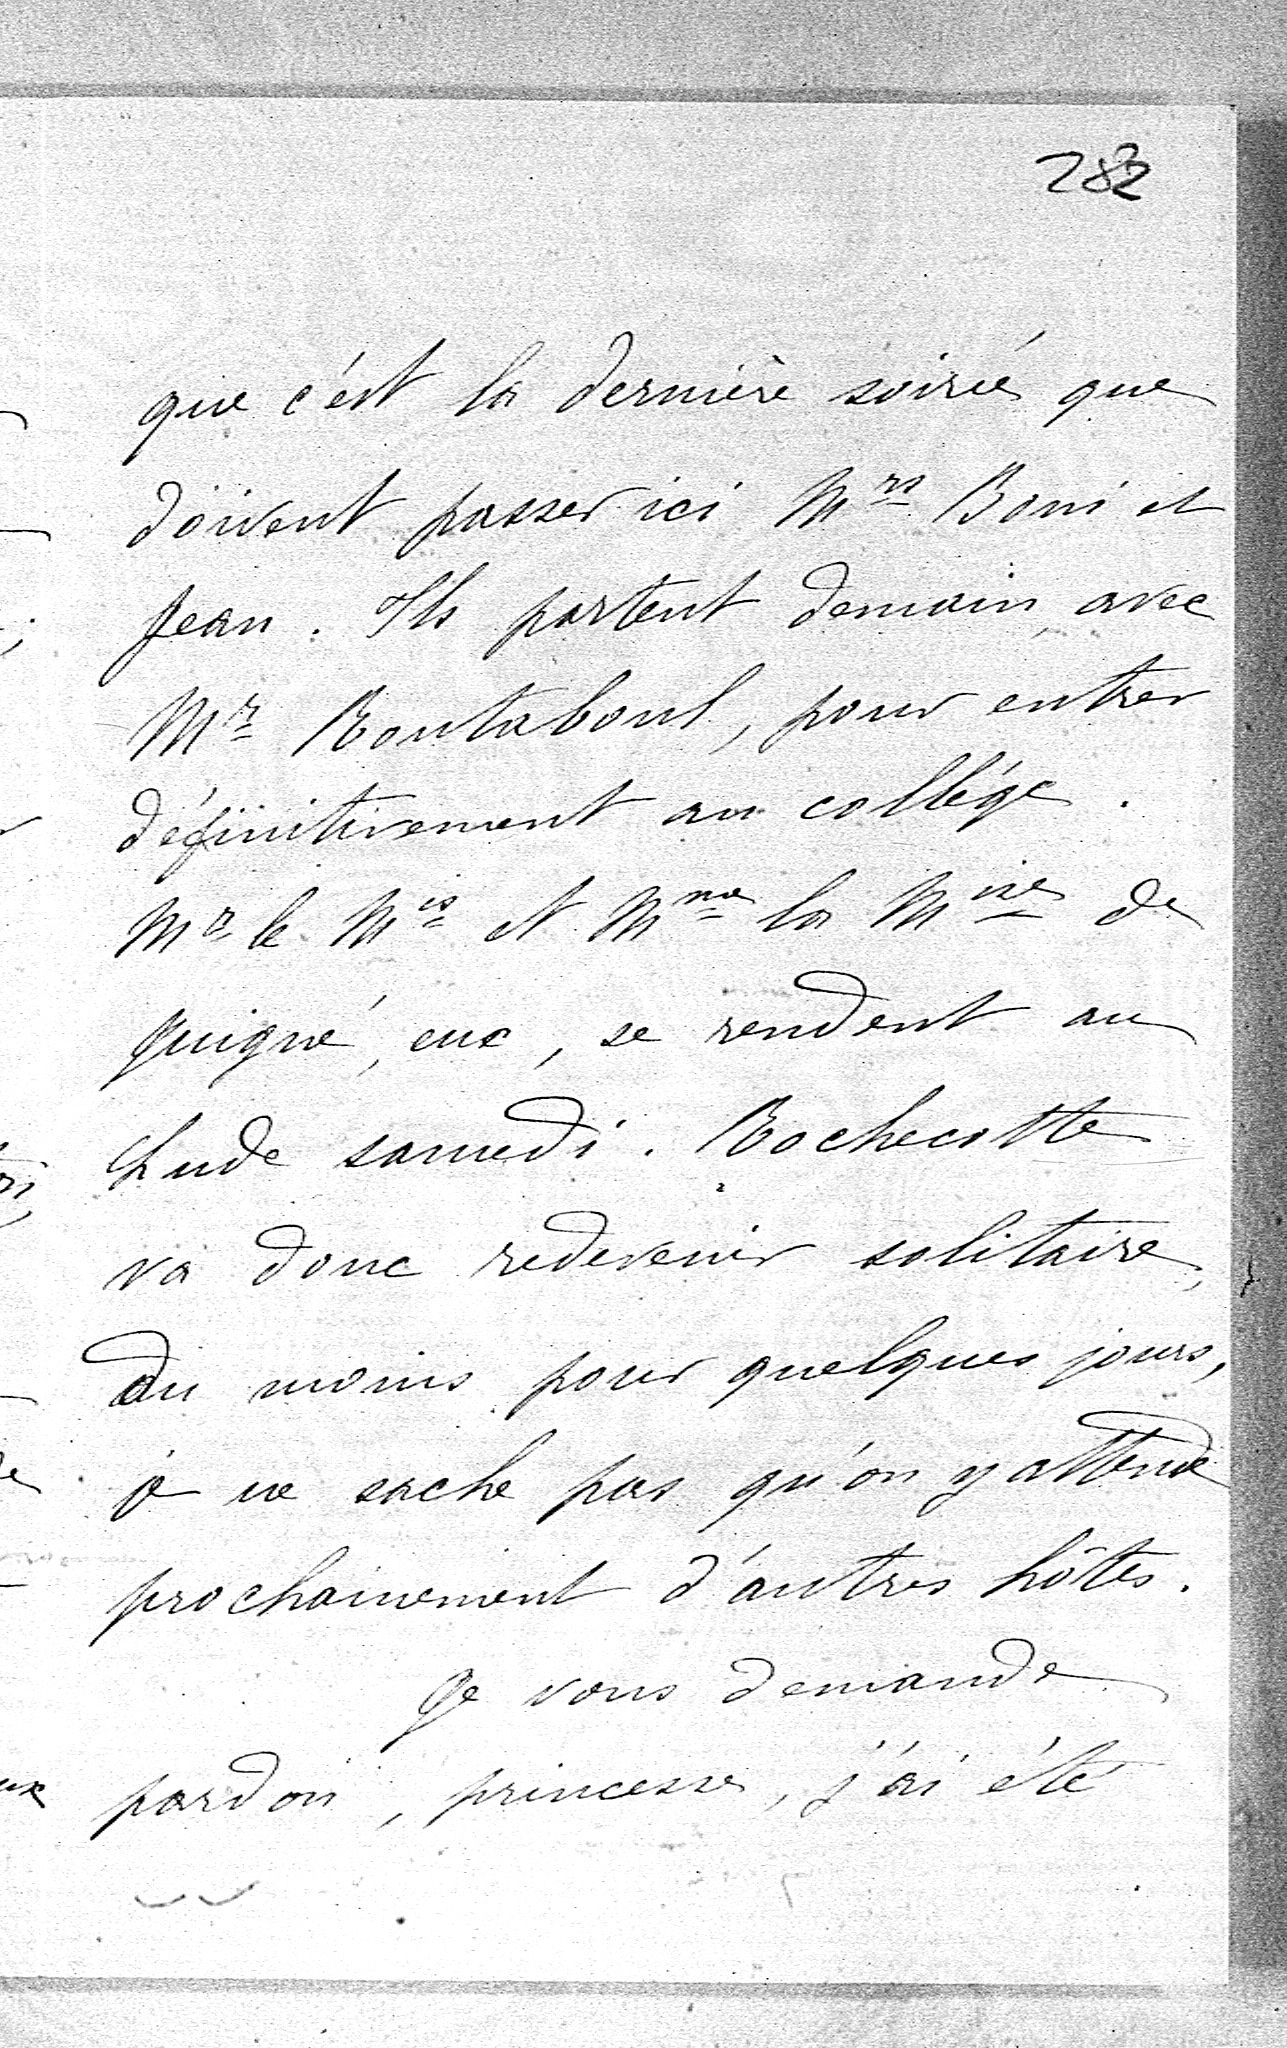 282
que c'est la dernière soirée que
doivent passer ici Mrs Boni et
Jean. Ils partent demain avec
Mr Boutaboul, pour entrer
définitivement au collége.
Mr le Mis et Mme la Mise de
Juigné, eux, se rendent au
Lude samedi. Rochecotte
va donc redevenir solitaire,
du moins pour quelques jours,
je ne sache pas qu'on y attende
prochainement d'autres hôtes.
Je vous demande
pardon, princesse, j'ai été